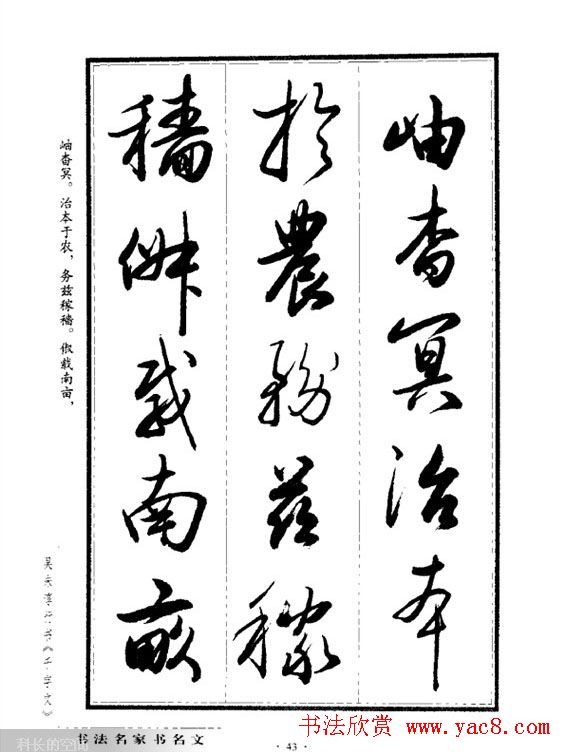 岫杳冥治本
於農務茲稼
穡俶载南畝
岫杳冥。治本于农，务兹稼穑。俶载南亩，
书《千字文》
书法名家书名文
· 43 ·
科长的空间
书法欣赏 www.yac8.com